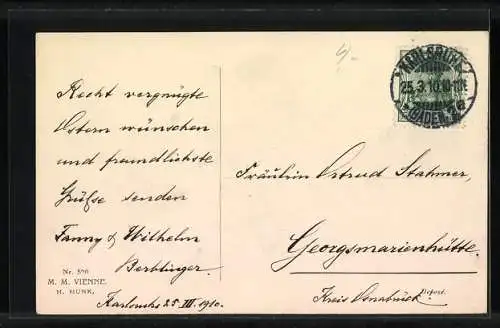 Recht vergnügte
Ostern wünschen
und freundlichste
Grüsse senden
Fanny & Wilhelm
Berblinger.
Karlsruhe 25. III. 1910.
Nr. 576
M. M. VIENNE.
M. MUNK.
KARLSRUHE
25.3.10.10-11V.
(BADEN) 2a
Fräulein Ortrud Stahmer,
Georgsmarienhütte.
Kreis Osnabrück